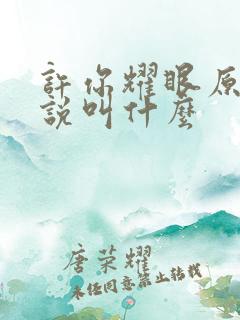 許你耀眼原
說叫什麼
唐荣耀
未经同意禁止转载